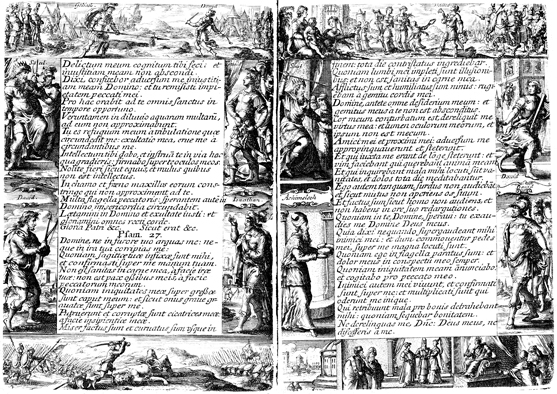 Goliath
David
Saul
David
Jonathas
Delictum meum cognitum tibi feci: et
iniustitiam meam non abscondi.
Dixi, confitebor adversum me iniustiti-
am meam Domino: et tu remisisti impi-
etatem peccati mei.
Pro hac orabit ad te omnis sanctus in
tempore opportuno.
Verumtamen in diluvio aquarum multarū,
ad eum non approximabunt.
Tu es refugium meum a tribulatione quæ
circumdedit me: exultatio mea, erue me a
circumdantibus me.
Intellectum tibi dabo, et instruā te in via hac
qua gradieris: firmabo super te oculos meos.
Nolite fieri sicut equus, et mulus quibus
non est intellectus.
In chamo et fræno maxillas eorum cons-
tringe qui non approximant ad te.
Multa flagella peccatoris: sperantem autē in
Domino misericordia circumdabit.
Lætamini in Domino et exultate iusti: et
gloriamini omnes recti corde.
Gloria Patri &c. Sicut erat &c.
Psalm. 27.
Domine, ne in furore tuo arguas me: ne-
que in ira tua corripias me.
Quoniam sagittæ tuæ infixæ sunt mihi,
et confirmasti super me manum tuam.
Non est sanitas in carne mea, a facie iræ
tuæ: non est pax ossibus meis, a facie
peccatorum meorum.
Quoniam iniquitates meæ super gressæ
sunt caput meum: et sicut onus grave gra-
vatæ sunt super me.
Putruerunt et corruptæ sunt cicatrices meæ
a facie insipientiæ meæ.
Miser factus sum et curvatus sum usque in
Saul
Achimelech
David
finem: tota die contristatus ingrediebar.
Quoniam lumbi mei impleti sunt illusioni-
bus: et non est sanitas in carne mea.
Afflictus sum et humiliatus sum nimis: rugi-
ebam a gemitu cordis mei.
Domine, ante te omne desiderium meum: et
gemitus meus a te non est absconditus.
Cor meum conturbatum est, dereliquit me
virtus mea: et lumen oculorum meorum, et
ipsum non est mecum.
Amici mei et proximi mei: adversum me
appropinquaverunt et steterunt.
Et qui iuxta me erant de longe steterunt: et
vim faciebant qui quærebant animā meam.
Et qui inquirebant mala mihi locuti sūt va-
nitates, et dolos tota die meditabantur.
Ego autem tanquam surdus non audiebam:
et sicut mutus non aperiens os suum.
Et factus sum sicut homo non audiens, et
non habens in ore suo redargutiones.
Quoniam in te, Domine, speravi: tu exau-
dies me Domine Deus meus.
Quia dixi: nequando supergaudeant mihi
inimici mei: et dum commoventur pedes
mei, super me magna locuti sunt.
Quoniam ego in flagella paratus sum: et
dolor meus in conspectu meo semper.
Quoniam iniquitatem meam annunciabo:
et cogitabo pro peccato meo.
Inimici autem mei vivunt, et confirmati
sunt super me: et multiplicati sunt qui
oderunt me inique.
Qui retribuunt mala pro bonis detrahebant
mihi: quoniam sequebar bonitatem.
Ne derelinquas me, Dñe: Deus meus, ne
discesseris a me.